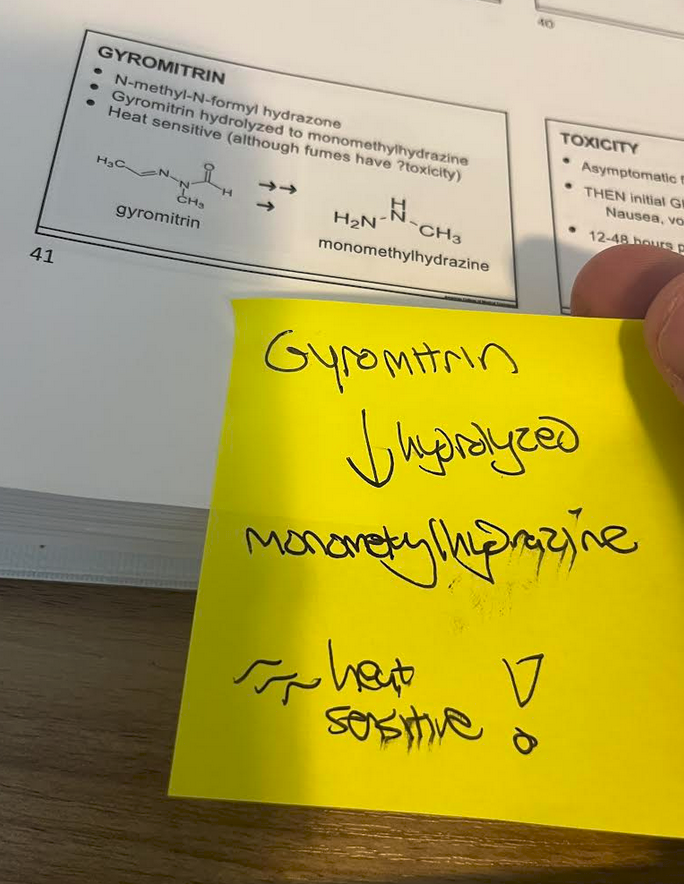 40
GYROMITRIN
• N-methyl-N-formyl hydrazone
• Gyromitrin hydrolyzed to monomethylhydrazine
• Heat sensitive (although fumes have ?toxicity)
H₃C N N O H CH₃
gyromitrin
→→
→
H₂N N H CH₃
monomethylhydrazine
41
TOXICITY
• Asymptomatic
• THEN initial
Nausea,
• 12-48 hours
Gyromitrin
↓ hydrolyzed
monometylhydrazine
heat
sensitive !